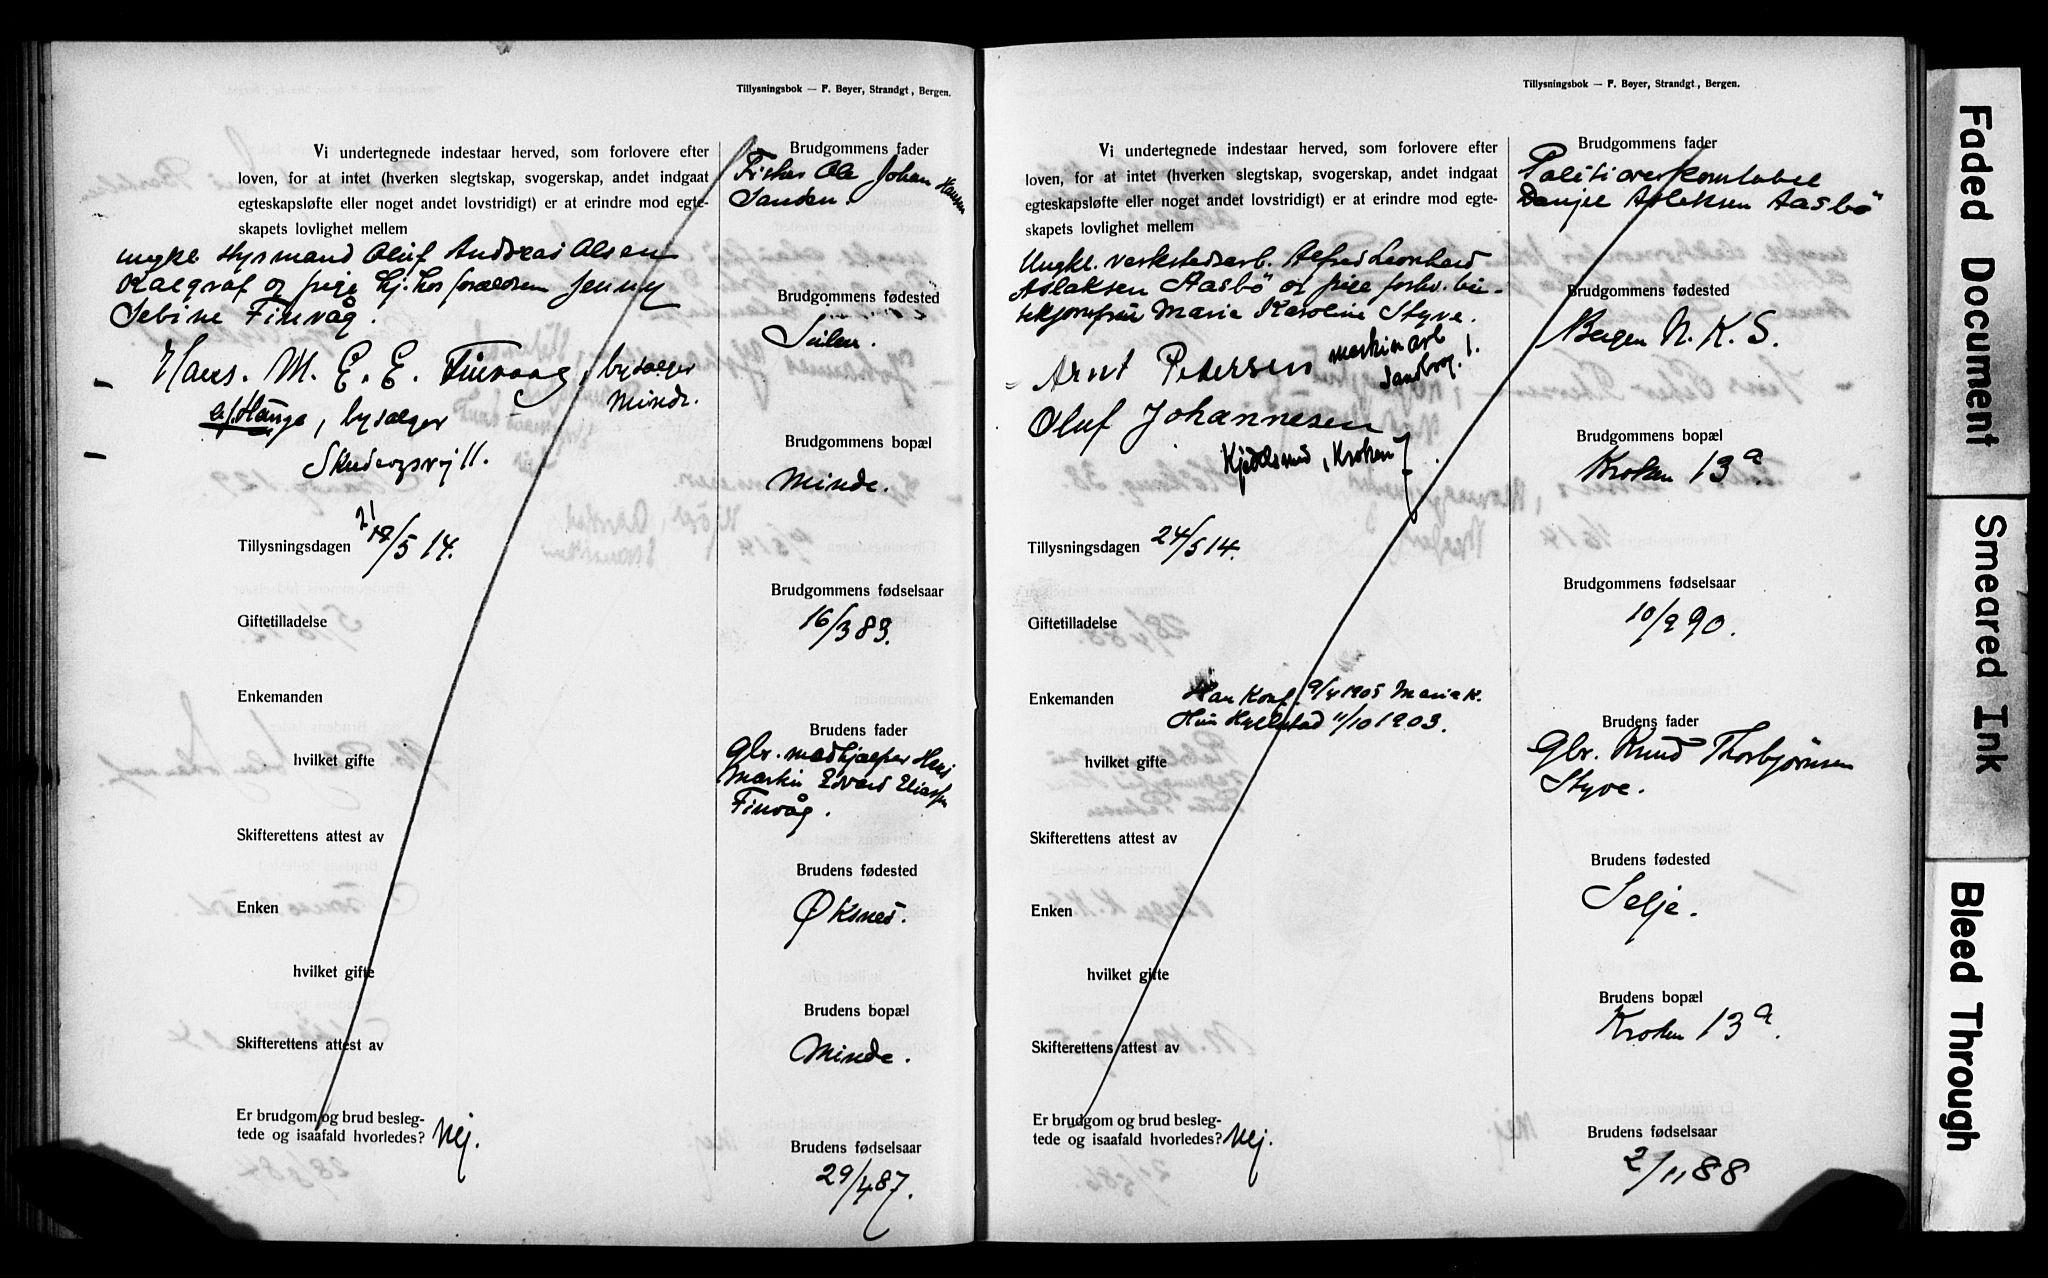 Tillysningsbok — F. Beyer, Strandgt., Bergen.
Vi undertegnede indestaar herved, som forlovere efter
loven, for at intet (hverken slegtskap, svogerskap, andet indgaat
egteskapsløfte eller noget andet lovstridigt) er at erindre mod egte-
skapets lovlighet mellem
ungkl styrmand Oluf Andreas Olsen
og pige hj. hos forældren Jenny
Sebine Finvåg.
Hans. M. E. E. Finvaag, bysælger
Minde.
Hauge, bysælger
11.
Tillysningsdagen 21/5 14.
Giftetilladelse
Enkemanden
hvilket gifte
Skifterettens attest av
Enken
hvilket gifte
Skifterettens attest av
Er brudgom og brud besleg-
tede og isaafald hvorledes? Nej.
Brudgommens fader
Fisker Ole Johan Hansen
Sanden.
Brudgommens fødested
Brudgommens bopæl
Minde.
Brudgommens fødselsaar
16/3 83.
Brudens fader
Gbr. madhjælper Hans
Martin Edvard Eliassen
Finvåg.
Brudens fødested
Øksnes.
Brudens bopæl
Minde.
Brudens fødselsaar
29/4 87.
Tillysningsbok — F. Beyer, Strandgt., Bergen.
Vi undertegnede indestaar herved, som forlovere efter
loven, for at intet (hverken slegtskap, svogerskap, andet indgaat
egteskapsløfte eller noget andet lovstridigt) er at erindre mod egte-
skapets lovlighet mellem
Ungkl. verkstedsarb. Alfred Leonhard
Aslaksen Aasbö og pige forhv. bu-
tikjomfru Marie Karoline Styve.
Arnt Petersen maskinarb
Sandbrog. 1.
Oluf Johannesen
Kjedelsmed, Kroken 7.
Tillysningsdagen 24/5 14.
Giftetilladelse
Enkemanden
Han Konf. 9/4 1905 Mariek.
Hun Hyllestad 11/10 1903.
hvilket gifte
Skifterettens attest av
Enken
hvilket gifte
Skifterettens attest av
Er brudgom og brud besleg-
tede og isaafald hvorledes? Nej.
Brudgommens fader
Politioverkonstabel
Danjel Aslaksen Aasbö
Brudgommens fødested
Bergen N. K. S.
Brudgommens bopæl
Kroken 13 a
Brudgommens fødselsaar
10/9 90.
Brudens fader
Gbr. Knud Thorbjørnsen
Styve.
Brudens fødested
Selje.
Brudens bopæl
Kroken 13 a.
Brudens fødselsaar
2/11 88
Faded Document
Smeared Ink
Bleed Through